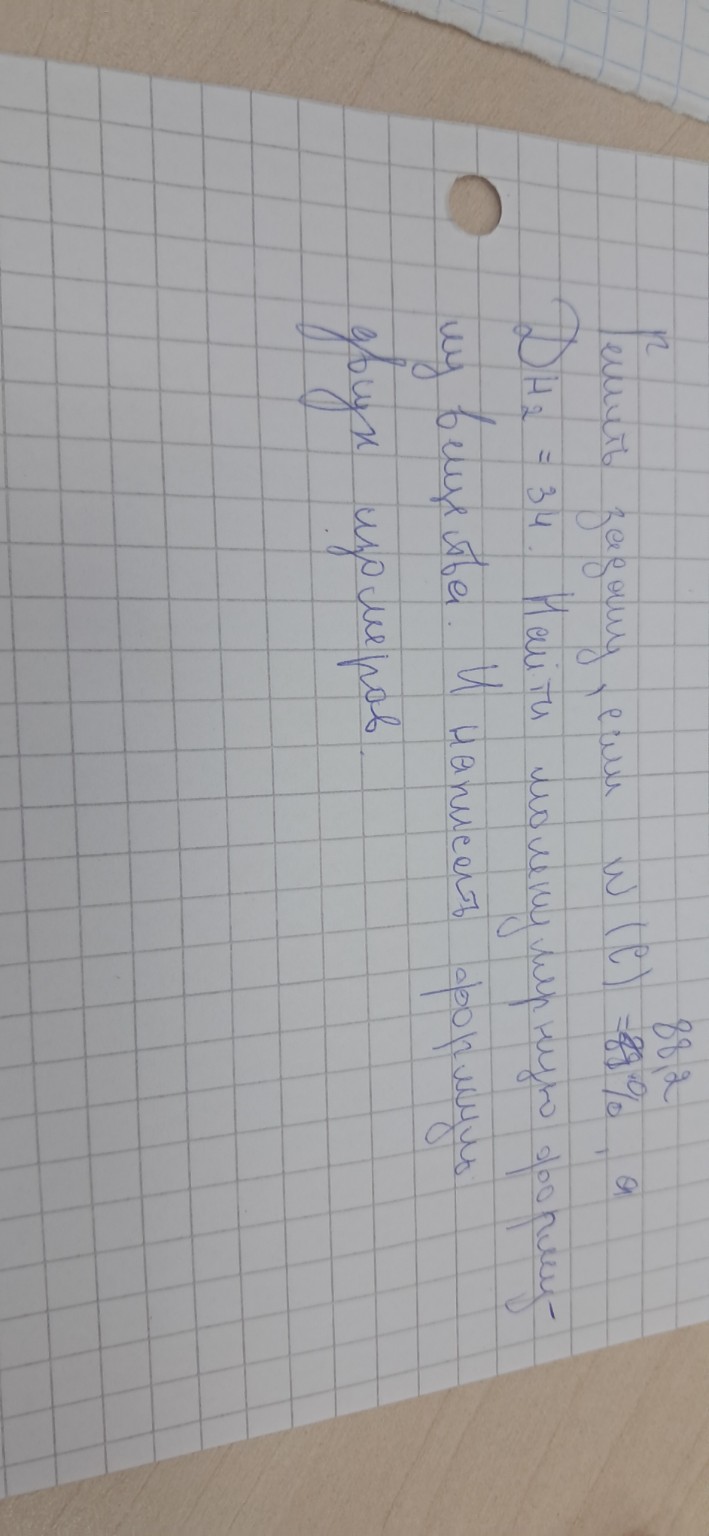 Решить задачу, если W (C) = 88,2 %, а
D H2 = 34. Найти молекулярную форму-
лу вещества. И написать формулы
двух изомеров.